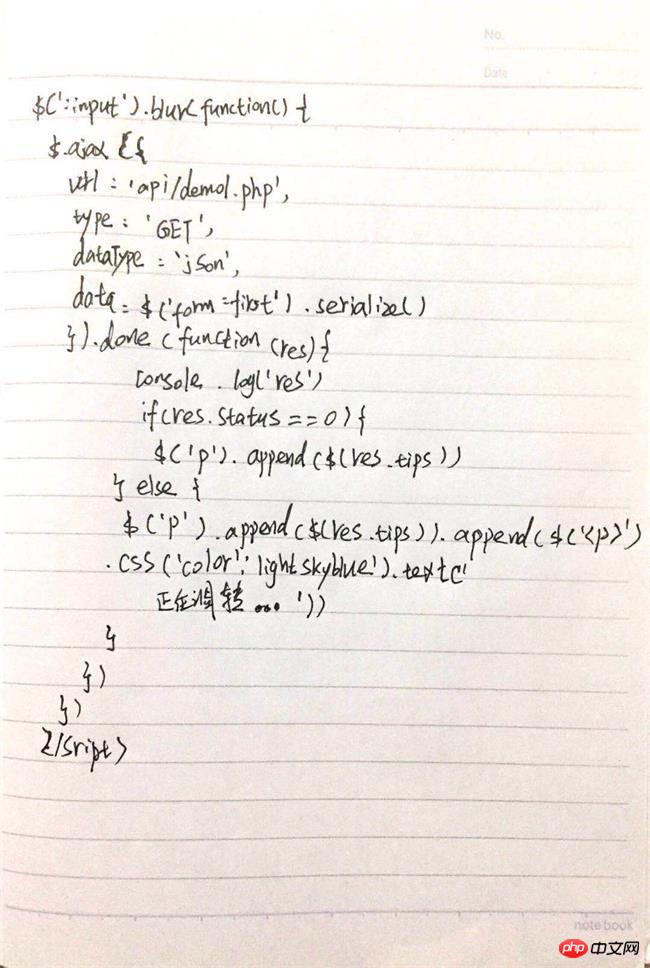 No.
Date
$(':input').blur(function() {
$.ajax({
url : 'api/demo1.php',
type : 'GET',
dataType : 'json',
data : $('form:first').serialize()
}).done(function(res){
console.log('res')
if(res.status == 0){
$('p').append($(res.tips))
} else {
$('p').append($(res.tips)).append($('<p>')
.css('color','lightskyblue').text('
正在调转...'))
}
})
})
</sript>
note book
php 中文网